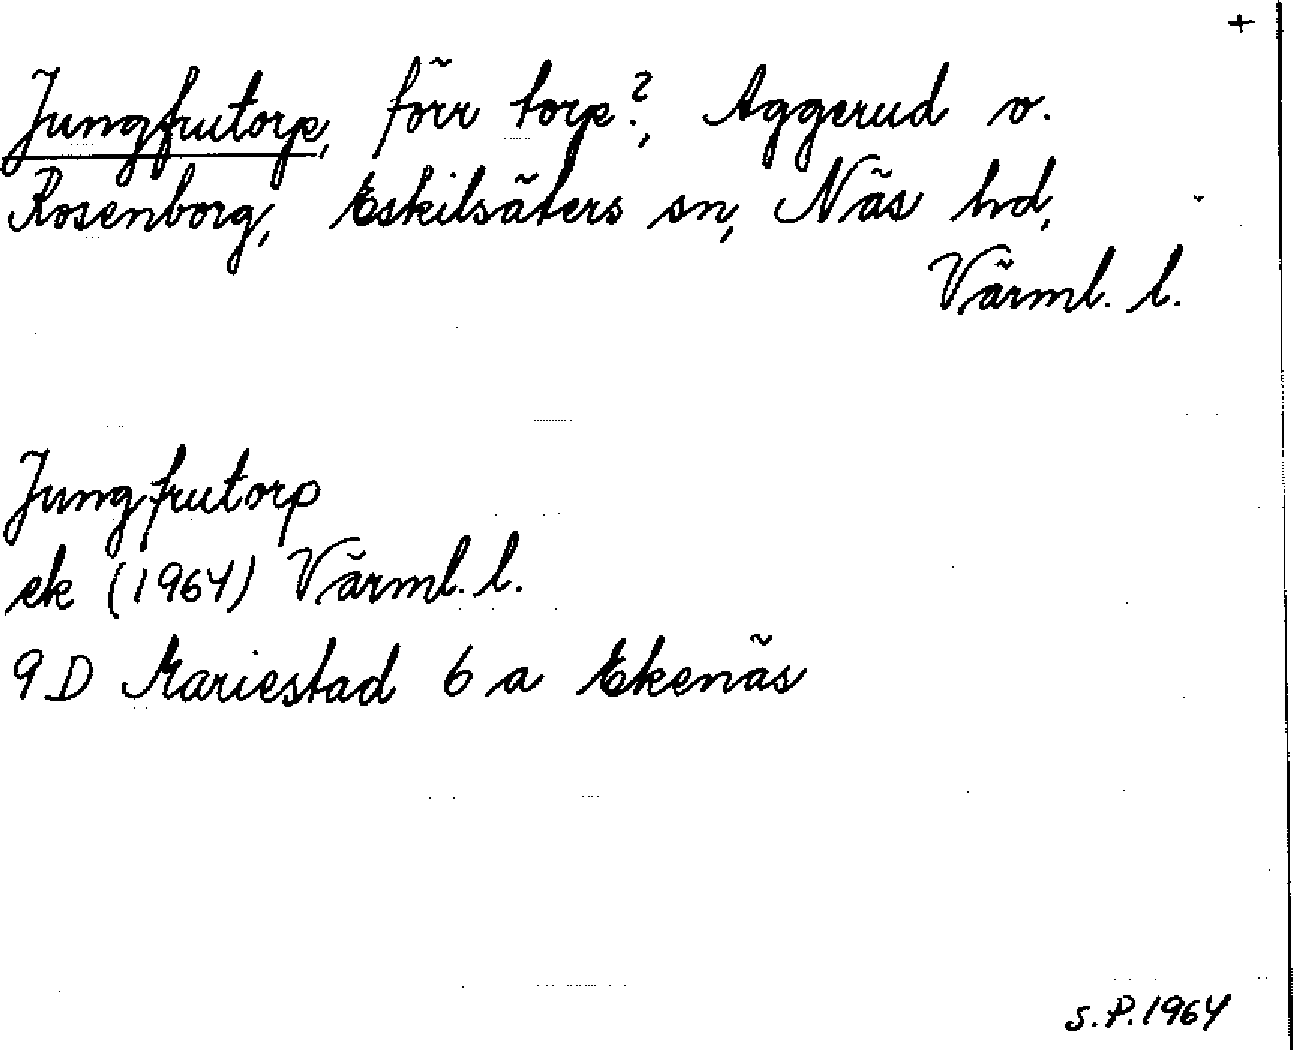 +
Jungfrutorp, förr torp?, Aggerud o.
Rosenborg, Eskilsäters sn, Näs hd,
Värml. l.
Jungfrutorp
ek (1964) Värml. l.
9 D Mariestad 6 a Ekenäs
S.P. 1964